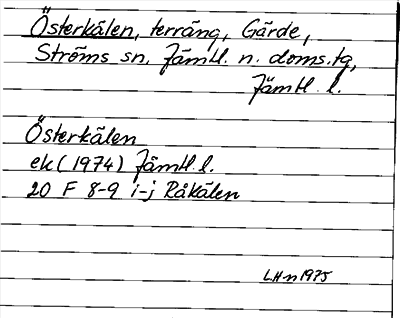 Österkälen, terräng, Gärde,
Ströms sn. Jämtl. n. doms.tg,
Jämtl. l.
Österkälen
ek (1974) Jämtl. l.
20 F 8-9 i-j Råkälen
LHn 1975